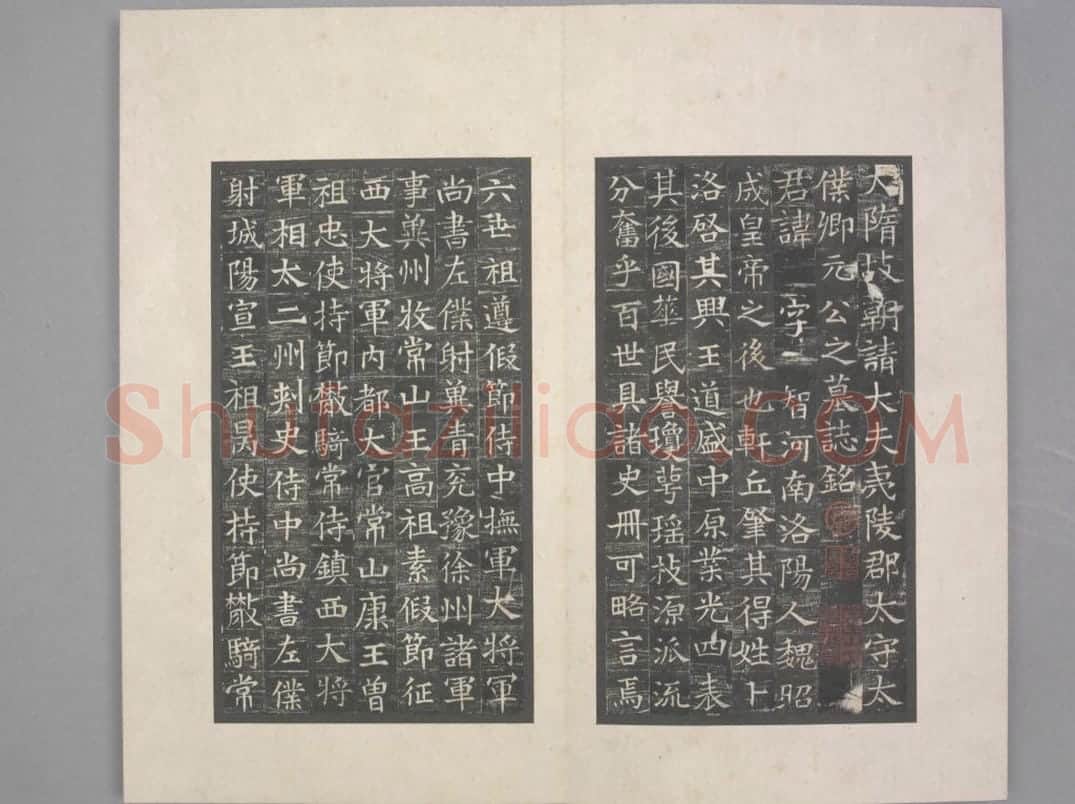 大隋故朝請大夫夷陵郡太守太
僕卿元公之墓誌銘
君諱 字 智河南洛陽人魏昭
成皇帝之後也軒丘肇其得姓卜
洛啓其興王道盛中原業光四表
其後國華民譽瓊萼瑶枝源派流
分奮乎百世具諸史冊可略言焉
六世祖遵假節侍中撫軍大將軍
尚書左僕射兾青兖豫徐州諸軍
事兾州牧常山王高祖素假節征
西大將軍内都大官常山康王曽
祖忠使持節散騎常侍鎮西大將
軍相太二州刺史侍中尚書左僕
射城陽宣王祖昺使持節散騎常
Shufaziliao.COM